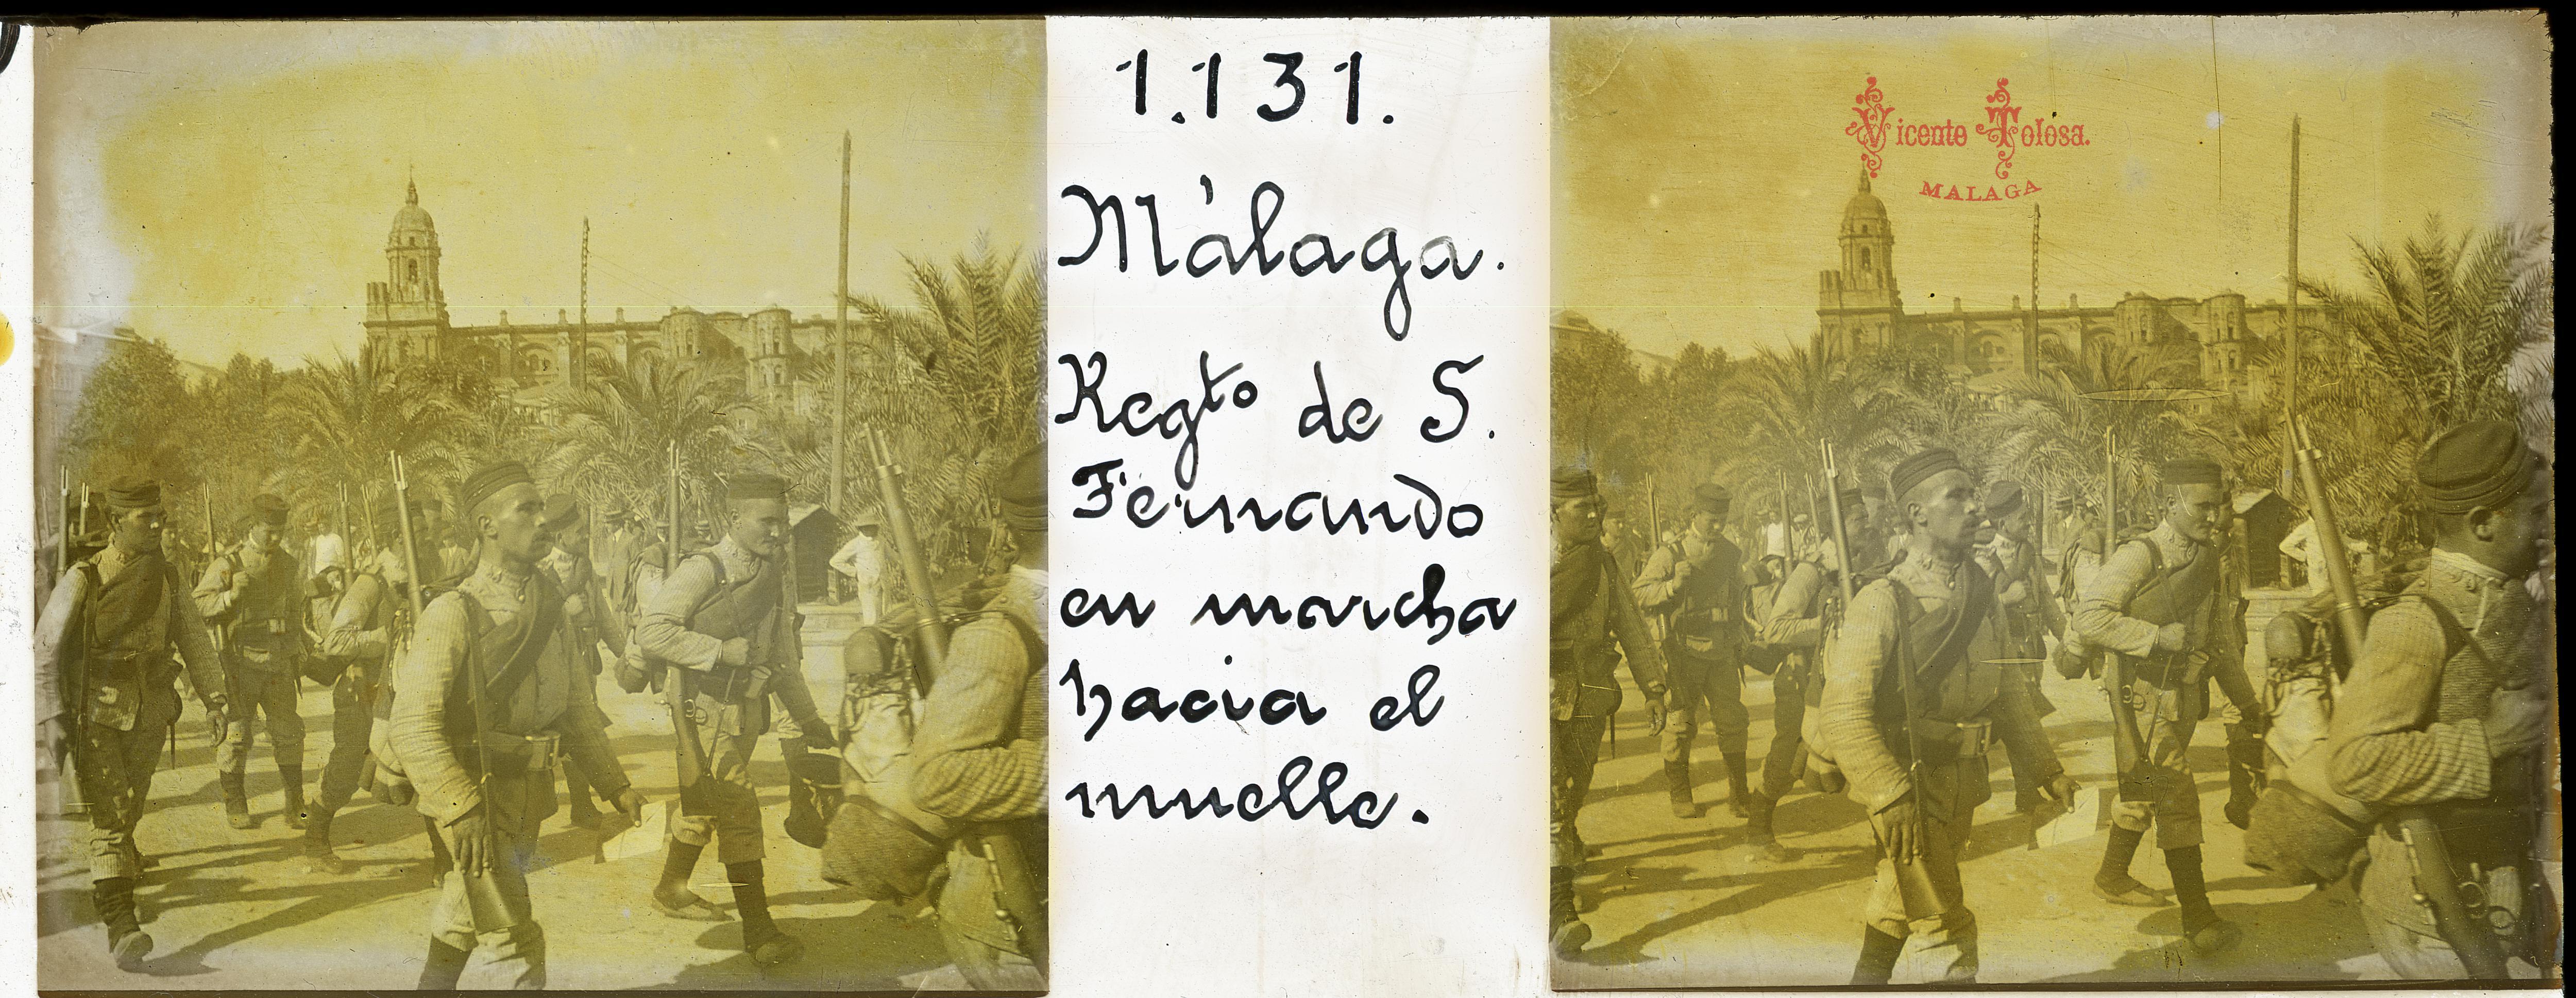 1.131.
Málaga.
Regto de S.
Fernando
en marcha
hacia el
muelle.
Vicente Tolosa.
MALAGA